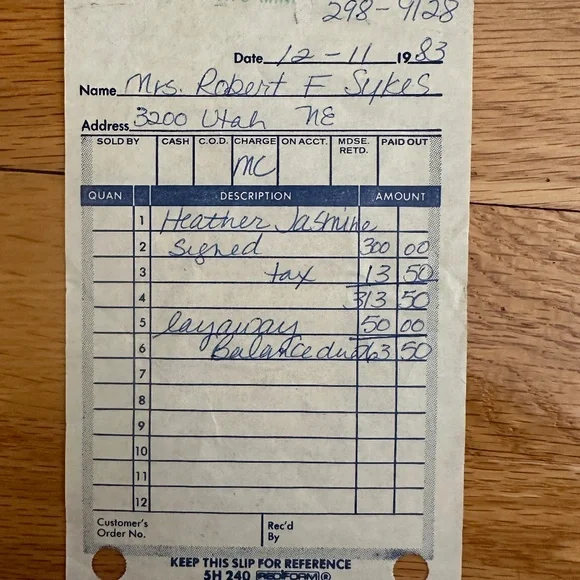 298-9128
Date 12-11 1983
Name Mrs. Robert F Sykes
Address 3200 Utah NE
SOLD BY CASH C.O.D. CHARGE ON ACCT. MDSE. RETD. PAID OUT
MC
QUAN DESCRIPTION AMOUNT
1 Heather Jasmine
2 Signed 300 00
3 tax 13 50
4 313 50
5 layaway 50 00
6 Balance due 263 50
7
8
9
10
11
12
Customer's Order No. Rec'd By
KEEP THIS SLIP FOR REFERENCE
5H 240 REDIFORM ®